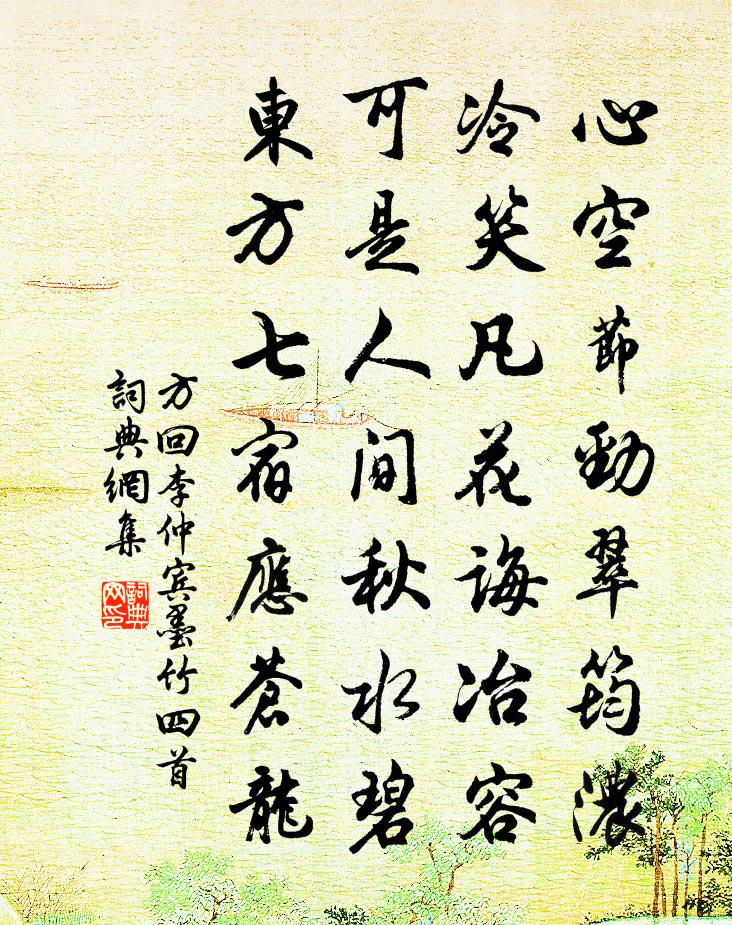 心空節勁翠筠濃
冷笑凡花誨冶容
可是人間秋水碧
東方七宿應蒼龍
方回李仲宾墨竹四首
詞典網集
詞典
网印